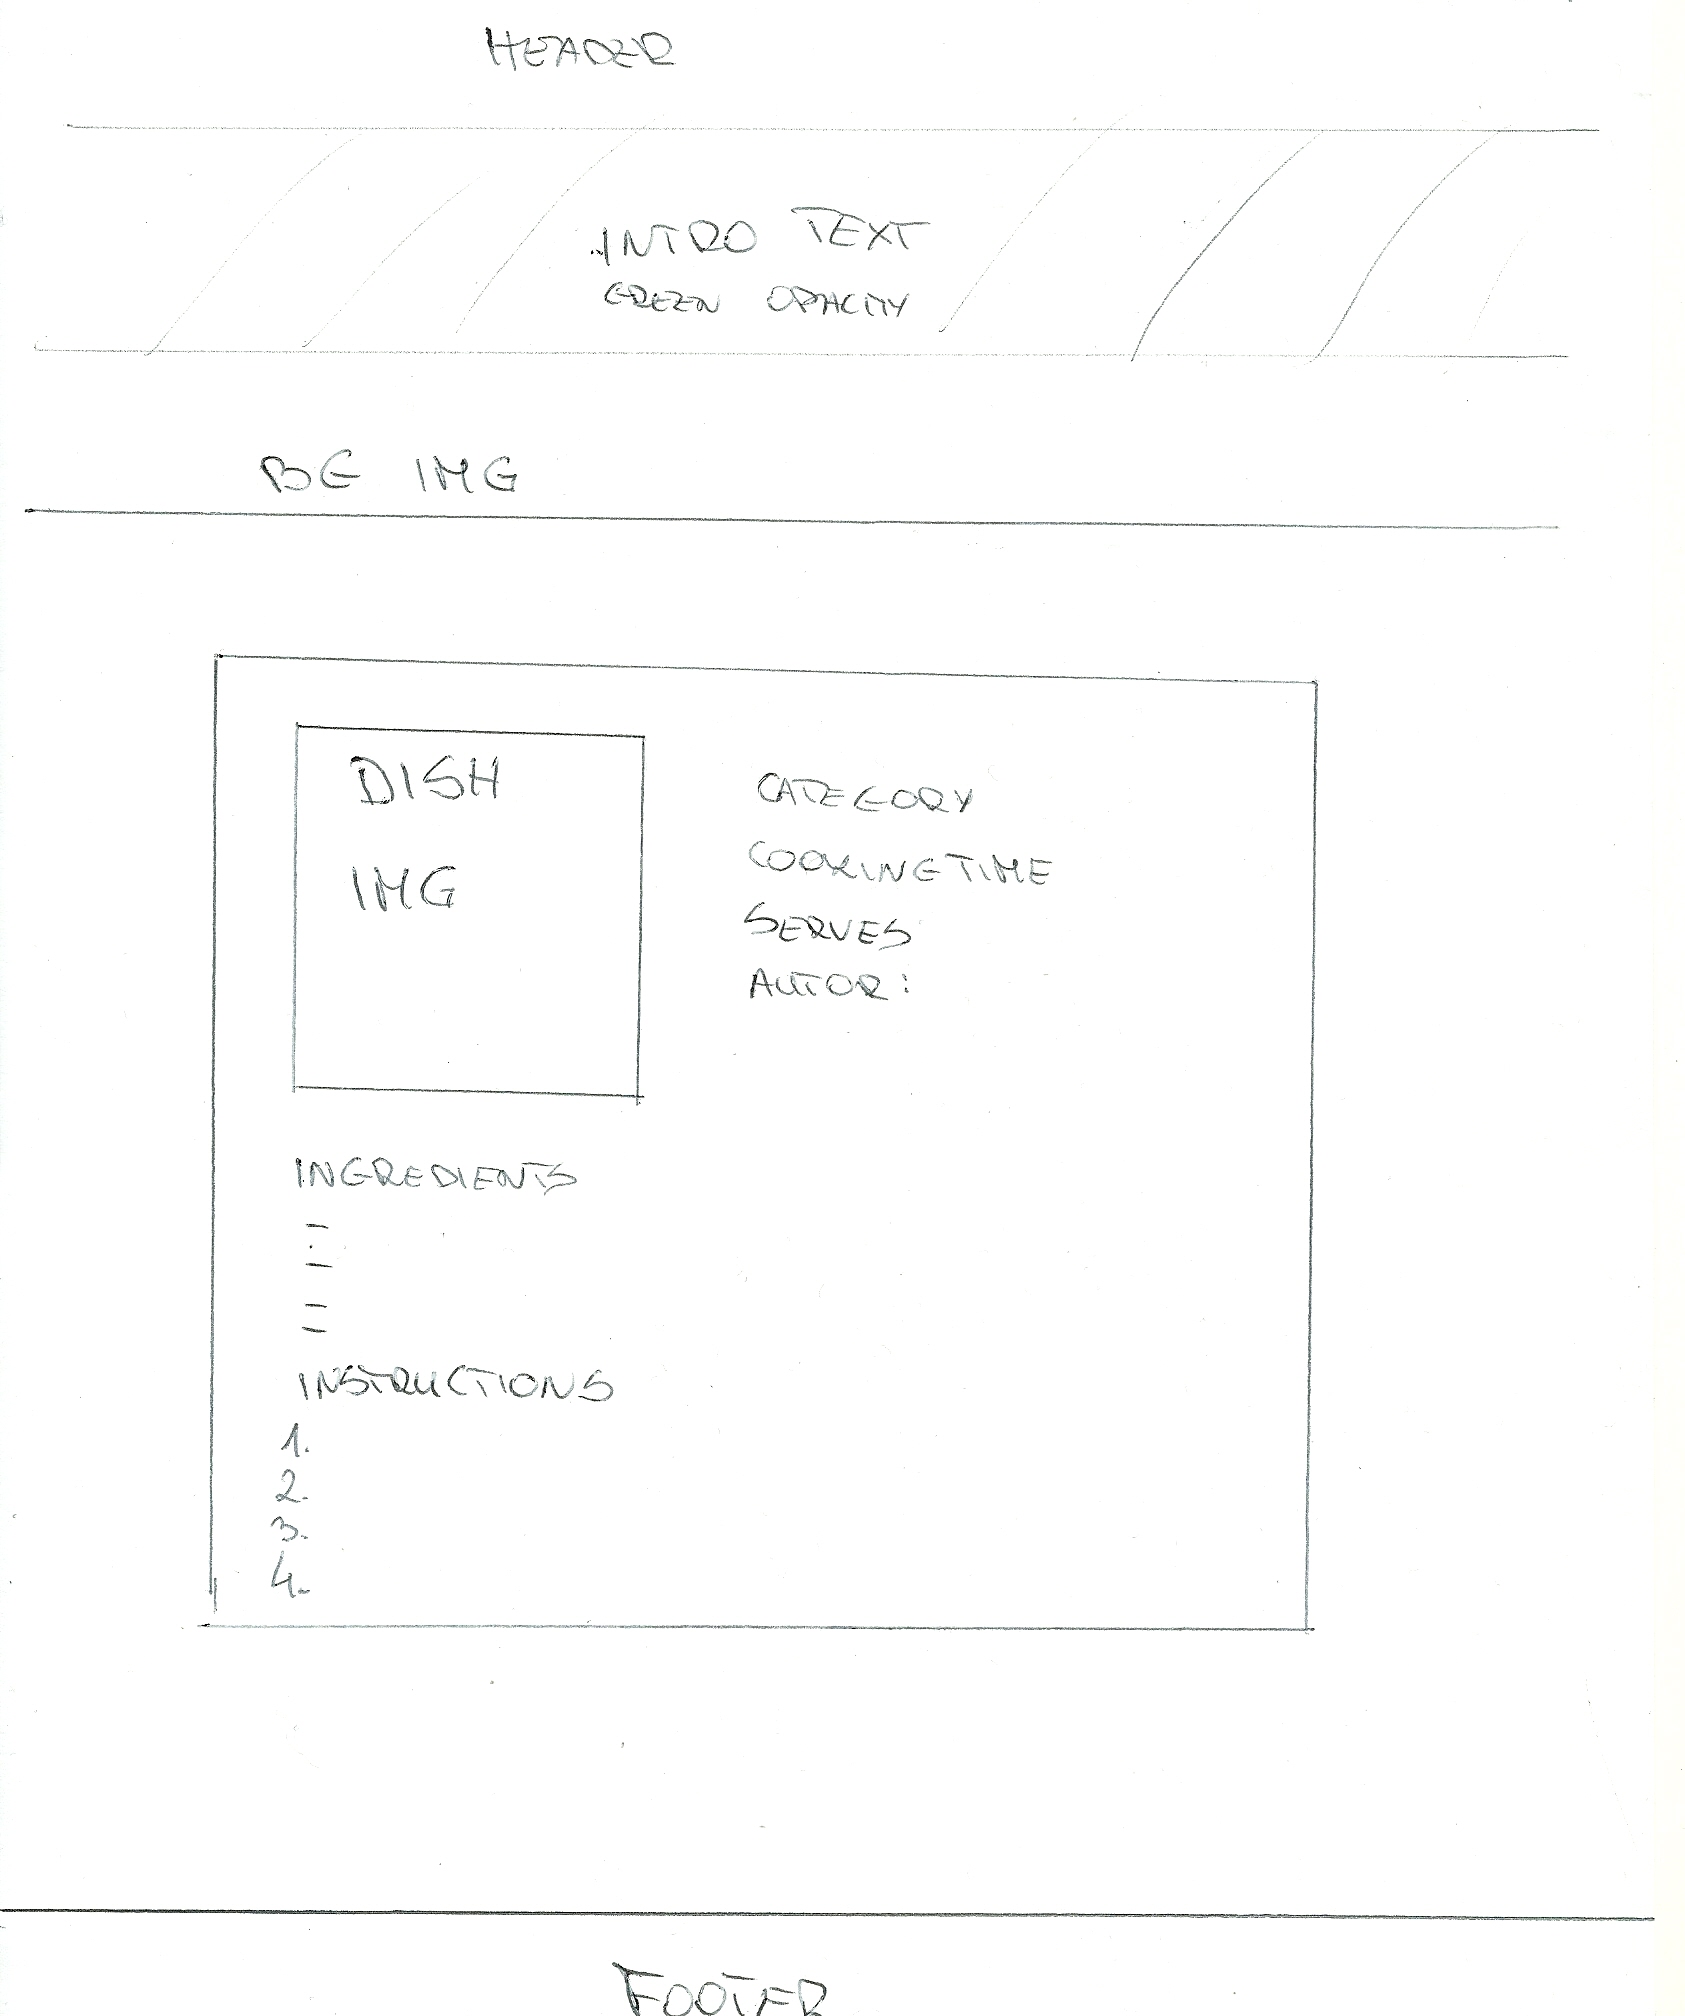 HEADER
INTRO TEXT
GREEN OPACITY
BG IMG
DISH
IMG
CATEGORY
COOKING TIME
SERVES
AUTOR:
INGREDIENTS
-
-
-
-
INSTRUCTIONS
1.
2.
3.
4.
FOOTER